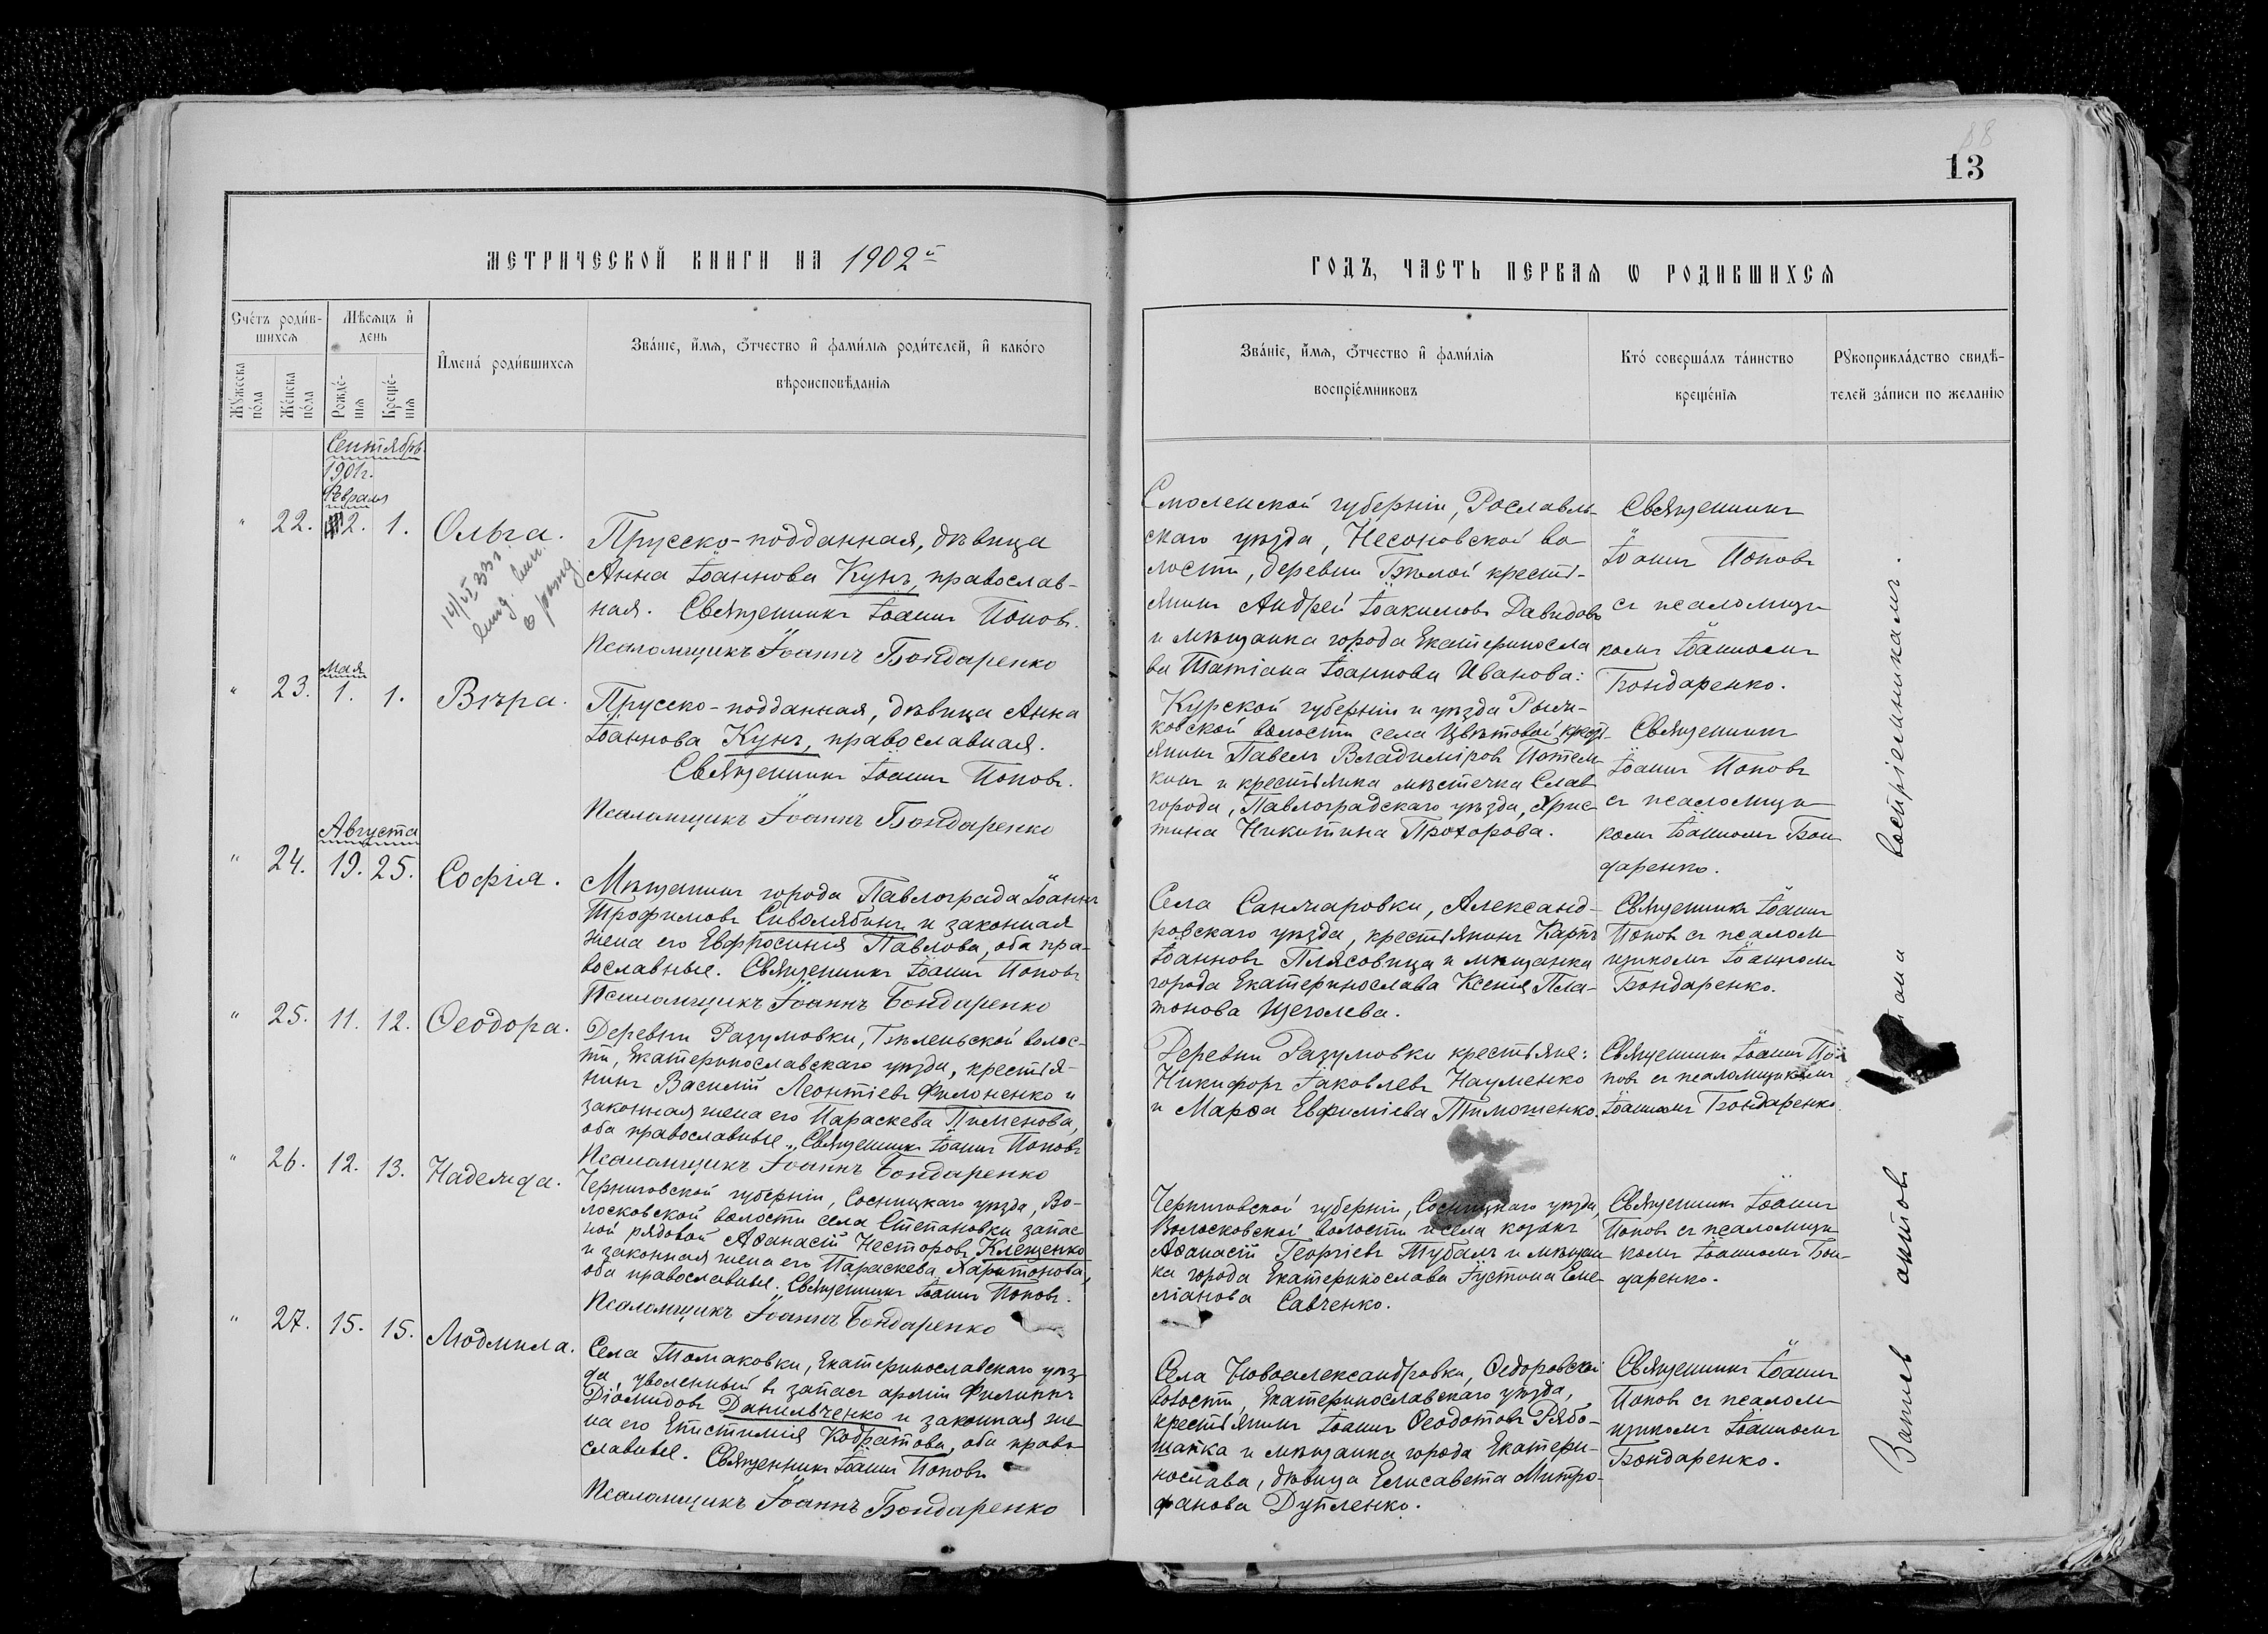 88
13
МЕТРИЧЕСКОЙ КНИГИ НА 1902й
ГОДЪ, ЧАСТЬ ПЕРВАЯ Ѡ РОДИВШИХСЯ
Счетъ родив-
шихся
Мѣсяцъ и
день
Мужеска
пола
Женска
пола
Рожде-
нія
Креще-
нія
Имена родившихся
Званіе, имя, отчество и фамилія родителей, и какого
вѣроисповѣданія
Званіе, имя, отчество и фамилія
воспріемниковъ
Кто совершалъ таинство
крещенія
Рукоприкладство свидѣ-
телей записи по желанію
Сентябрь
1901г.
Февраля
" 22. 2. 1. Ольга.
14/VI 33г.
Прусско-подданная, дѣвица
Анна Іоаннова Кунъ, православ-
ная. Священникъ Іоаннъ Поповъ.
Псаломщикъ Іоаннъ Бондаренко
Смоленской губерніи, Рославль-
скаго уѣзда, Несоновской во-
лости, деревни Бѣлой кресть-
янинъ Андрей Іоакимовъ Давидовъ
и мѣщанка города Екатериносла
ва Татіана Іоаннова Иванова:
Священникъ
Іоаннъ Поповъ
съ псаломщи-
комъ Іоанномъ
Бондаренко.
Мая
" 23. 1. 1. Вѣра.
Прусско-подданная, дѣвица Анна
Іоаннова Кунъ, православная.
Священникъ Іоаннъ Поповъ.
Псаломщикъ Іоаннъ Бондаренко
Курской губерніи и уѣзда Рыш-
ковской волости села Цвѣтовой крест-
янинъ Павелъ Владиміровъ Потем-
кинъ и крестьянка мѣстечка Слав
города, Павлоградскаго уѣзда, Хрис-
тина Никитина Прохорова.
Священникъ
Іоаннъ Поповъ
съ псаломщи-
комъ Іоанномъ Бон
даренко.
Августа
" 24. 19. 25. Софія.
Мѣщанинъ города Павлограда Іоаннъ
Трофимовъ Сиволябинъ и законная
жена его Евфросинія Павлова, оба пра-
вославные. Священникъ Іоаннъ Поповъ
Псаломщикъ Іоаннъ Бондаренко
Села Санжаровки, Александ-
ровскаго уѣзда, крестьянинъ Карпъ
Іоанновъ Плясовица и мѣщанка
города Екатеринослава Ксенія Пла-
тонова Щеголева.
Священникъ Іоаннъ
Поповъ съ псалом-
щикомъ Іоанномъ
Бондаренко.
" 25. 11. 12. Ѳеодора.
Деревни Разумовки, Бѣленьской волос-
ти, Екатеринославскаго уѣзда, крестья-
нинъ Василій Леонтіевъ Филоненко и
законная жена его Параскева Пименова,
оба православные. Священникъ Іоаннъ Поповъ
Псаломщикъ Іоаннъ Бондаренко
Деревни Разумовки крестьяне:
Никифоръ Іаковлевъ Науменко
и Марѳа Евфиміева Тимошенко
Священникъ Іоаннъ По-
повъ съ псаломщикомъ
Іоанномъ Бондаренко.
" 26. 12. 13. Надежда.
Черниговской губерніи, Сосницкаго уѣзда, Во-
лосковской волости села Степановки запас
ной рядовой Аѳанасій Несторовъ Клещенко
и законная жена его Параскева Харитонова,
оба православные. Священникъ Іоаннъ Поповъ.
Псаломщикъ Іоаннъ Бондаренко
Черниговской губерніи, Сосницкаго уѣзда,
Волосковской волости и села козакъ
Аѳанасій Георгіевъ Тубалъ и мѣщан
ка города Екатеринослава Іустина Еме-
ліанова Савченко.
Священникъ Іоаннъ
Поповъ съ псаломщи
комъ Іоанномъ Бон-
даренко.
" 27. 15. 15. Людмила.
Села Томаковки, Екатеринославскаго уѣз
да, уволенный въ запасъ арміи Филиппъ
Діомидовъ Данильченко и законная же
на его Епистимія Кодратова, оба право
славные. Священникъ Іоаннъ Поповъ
Псаломщикъ Іоаннъ Бондаренко
Села Новоалександровки, Ѳедоровской
волости, Екатеринославскаго уѣзда,
крестьянинъ Іоаннъ Ѳеодотовъ Рябо-
шапка и мѣщанка города Екатери-
нослава, дѣвица Елисавета Митро-
фанова Дупленко.
Священникъ Іоаннъ
Поповъ съ псалом-
щикомъ Іоанномъ
Бондаренко.
актовъ воспріемниками.